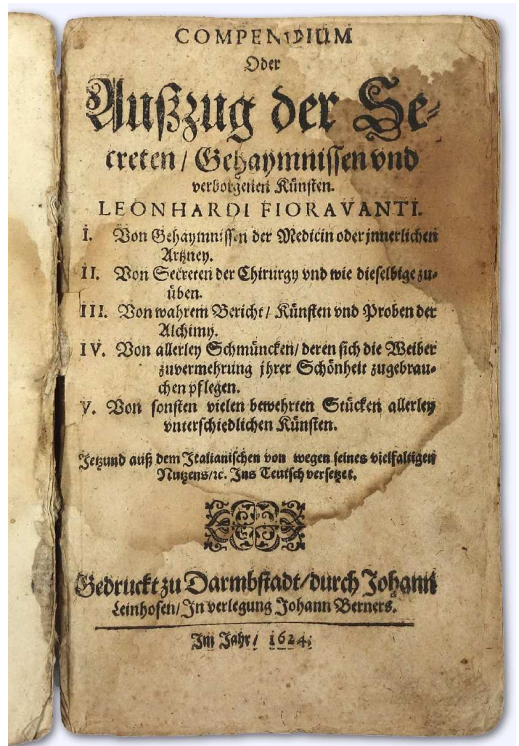 COMPENDIUM
Oder
Außzug der Se-
creten / Gehaymnissen vnd
verborgenen Künsten.
LEONHARDI FIORAVANTI.
I. Von Gehaymnissen der Medicin oder jnnerlichen
Artzney.
II. Von Secreten der Chirurgy vnd wie dieselbige zu-
üben.
III. Von wahrem Bericht / Künsten vnd Proben der
Alchimy.
IV. Von allerley Schmüncken / deren sich die Weiber
zuvermehrung jhrer Schönheit zugebrau-
chen pflegen.
V. Von sonsten vielen bewehrten Stücken allerley
vnterschiedlichen Künsten.
Jetzund auß dem Italianischen von wegen seines vielfaltigen
Nutzens / ꝛc. Ins Teutsch versetzet.
Gedruckt zu Darmbstadt / durch Johann
Leinhofen / In verlegung Johann Berners.
Im Jahr / 1624.